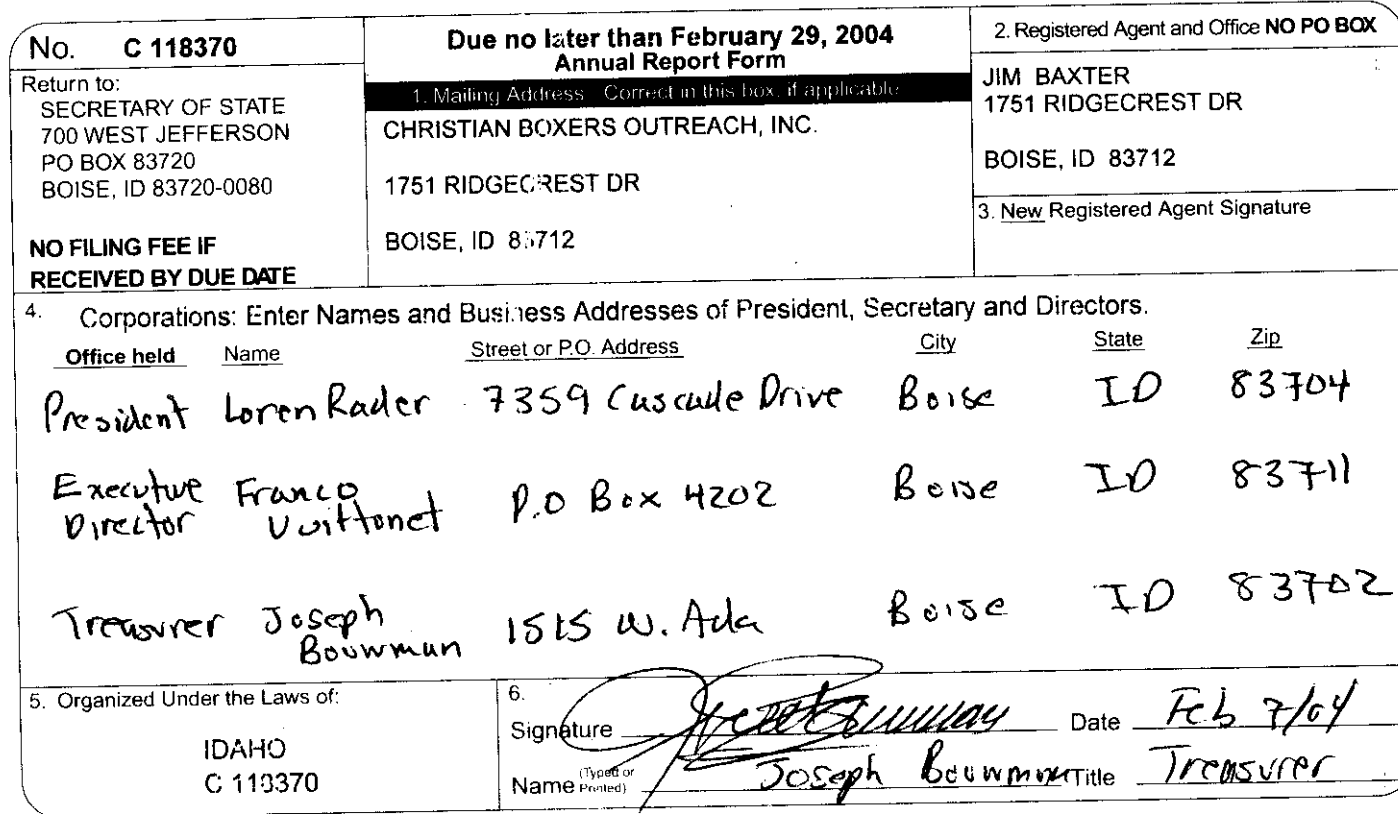 No. C 118370
Return to:
SECRETARY OF STATE
700 WEST JEFFERSON
PO BOX 83720
BOISE, ID 83720-0080
NO FILING FEE IF
RECEIVED BY DUE DATE
Due no later than February 29, 2004
Annual Report Form
1. Mailing Address Correct in this box, if applicable
CHRISTIAN BOXERS OUTREACH, INC.
1751 RIDGECREST DR
BOISE, ID 83712
2. Registered Agent and Office NO PO BOX
JIM BAXTER
1751 RIDGECREST DR
BOISE, ID 83712
3. New Registered Agent Signature
4. Corporations: Enter Names and Business Addresses of President, Secretary and Directors.
Office held Name Street or P.O. Address City State Zip
President Loren Rader 7359 Cascade Drive Boise ID 83704
Executive Director Franco Vuittonet P.O Box 4202 Boise ID 83711
Treasurer Joseph Bouwman 1515 W. Ada Boise ID 83702
5. Organized Under the Laws of:
IDAHO
C 118370
6.
Signature Date Feb 7/04
Name (Typed or Printed) Joseph Bouwman Title Treasurer